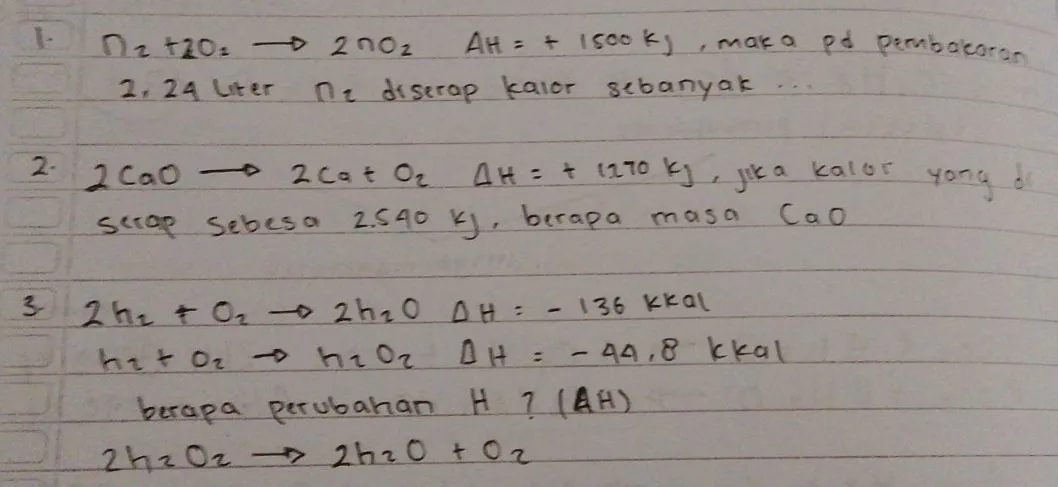 1. n₂ + 2O₂ → 2nO₂ ΔH = + 1500 kJ, maka pd pembakaran
2,24 Liter n₂ diserap kalor sebanyak ...
2. 2CaO → 2Ca + O₂ ΔH = + 1270 kJ, jika kalor yang di
serap sebesa 2.540 kJ, berapa masa CaO
3. 2h₂ + O₂ → 2h₂O ΔH = - 136 kkal
h₂ + O₂ → h₂O₂ ΔH = - 44,8 kkal
berapa perubahan H ? (ΔH)
2h₂O₂ → 2h₂O + O₂